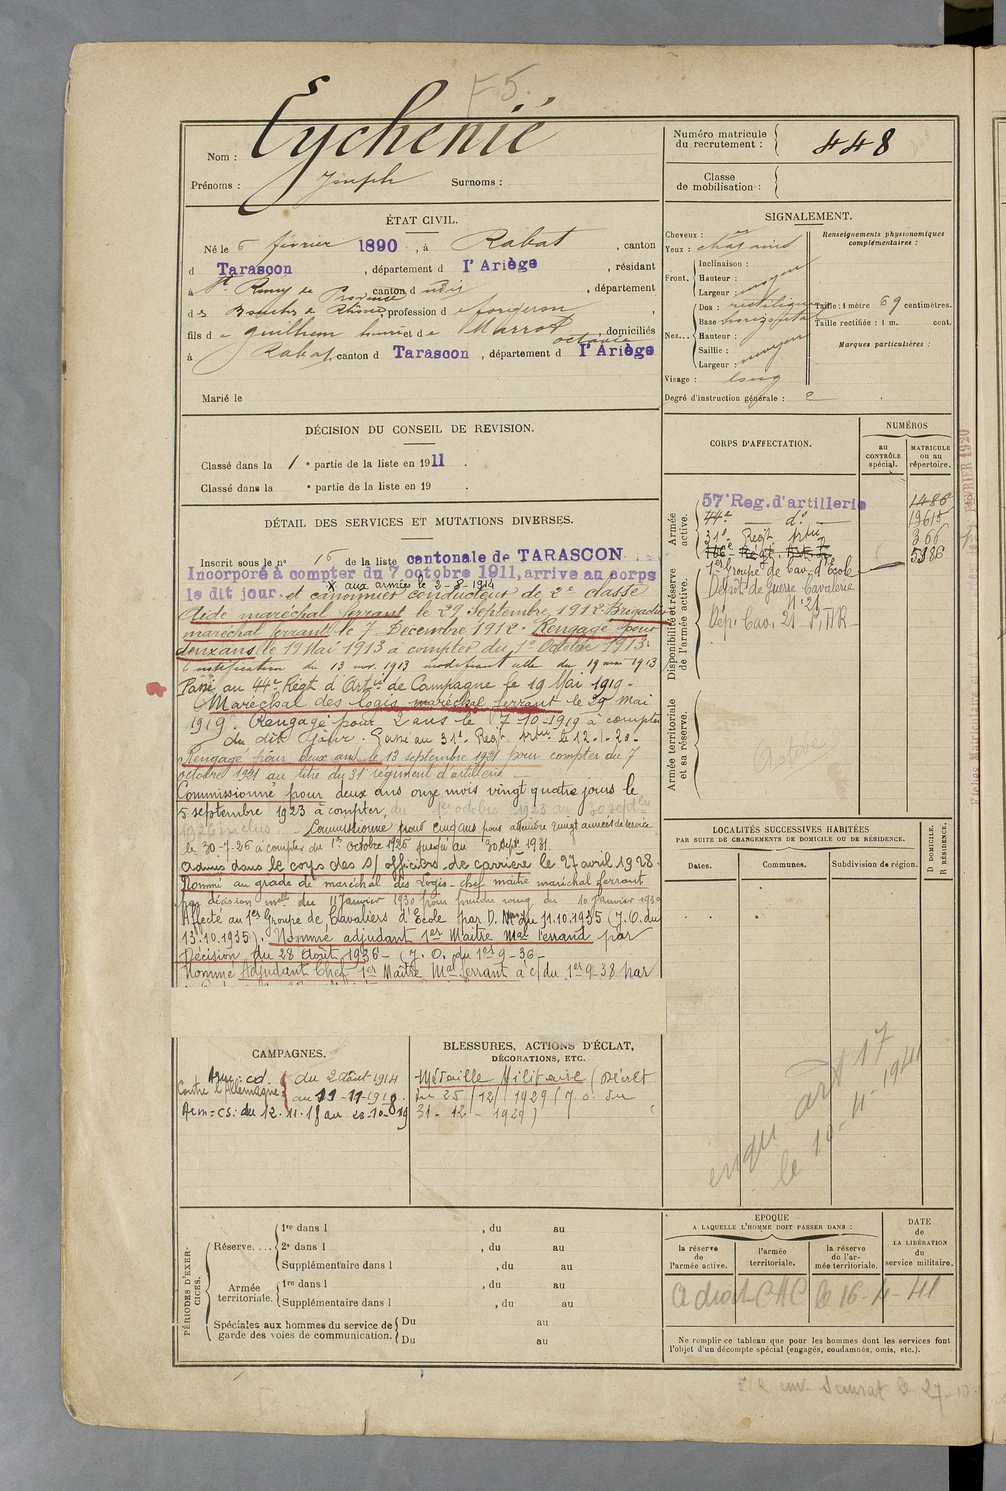 F5.
Nom : Eychenié
Prénoms : Joseph Surnoms :
Numéro matricule du recrutement : 448
Classe de mobilisation :
ÉTAT CIVIL.
Né le 6 février 1890, à Rabat, canton
d Tarascon, département d l'Ariège, résidant
à St Remy de Provence, canton d udit, département
des Bouches du Rhône, profession d e forgeron
fils d e guilhem henri et d e Marrot octavie, domiciliés
à Rabat, canton d Tarascon, département d l'Ariège
Marié le
SIGNALEMENT.
Cheveux :
Yeux : chatains
Front.
Inclinaison :
Hauteur :
Largeur : moyen
Nez...
Dos : rectiligne
Base horizontal
Hauteur :
Saillie : moyen
Largeur :
Visage : long
Degré d'instruction générale : 2
Renseignements physionomiques complémentaires :
Taille : 1 mètre 69 centimètres.
Taille rectifiée : 1 m. cent.
Marques particulières :
DÉCISION DU CONSEIL DE REVISION.
Classé dans la 1e partie de la liste en 1911.
Classé dans la e partie de la liste en 19 .
DÉTAIL DES SERVICES ET MUTATIONS DIVERSES.
Inscrit sous le n° 15 de la liste cantonale de TARASCON
Incorporé à compter du 7 octobre 1911, arrive au corps
x aux armées le 2-8-1914
le dit jour. et canonnier conducteur de 2e classe
Aide maréchal ferrant le 29 Septembre 1912 Brigadier
maréchal ferrant le 7 Décembre 1912. Rengagé pour
deux ans le 19 Mai 1913 à compter du 1er Octobre 1913.
notification du 13 nov. 1913 modifiant celle du 19 mai 1913
Passé au 44e Régt d'Artie de Campagne le 19 Mai 1919.
Maréchal des logis maréchal ferrant le 29 mai
1919. Rengagé pour 2 ans le 7-10-1919 à compter
du dit jour. Passé au 31e Regt Artie le 12-1-20-
Rengagé pour deux ans le 13 septembre 1921 pour compter du 7
octobre 1921 au titre du 31 régiment d'artillerie
Commissionné pour deux ans onze mois vingt quatre jours le
5 septembre 1923 à compter du 1er octobre 1923 au 30 septbre
1926 inclus. Commissionné pour cinq ans pour atteindre vingt années de service
le 30-7-26 à compter du 1er octobre 1926 jusqu'au 30 Sept. 1931.
Admis dans le corps des s/ officiers de carrière le 27 avril 1928.
Nommé au grade de maréchal des Logis-chef maître maréchal ferrant
par décision melle du 11 Janvier 1930 pour prendre rang du 10 Janvier 1930
Affecté au 1er Groupe de Cavaliers d'École par D. Mle du 11.10.1935 (J.O. du
13.10.1935). Nommé adjudant 1er Maître Mal ferrand par
Décision du 28 Août 1936 - (J.O. du 1er 9-36-
Nommé Adjudant Chef 1er Maître Mal ferrant à c/ du 1er 9-38 par
CORPS D'AFFECTATION.
NUMÉROS
au CONTRÔLE spécial.
MATRICULE ou au répertoire.
Armée active.
57e Reg. d'artillerie 1486
44e do 1961
31e Regt Artie 366
5986
1er Groupe de Cav. d'École
Disponibilité et réserve de l'armée active.
Dépôt de Guerre Cavalerie
N° 21
Dép. Cav. 21
Armée territoriale et sa réserve.
Active
LOCALITÉS SUCCESSIVES HABITÉES
PAR SUITE DE CHANGEMENTS DE DOMICILE OU DE RÉSIDENCE.
Dates. Communes. Subdivision de région. D DOMICILE. R RÉSIDENCE.
CAMPAGNES.
Contre l'Allemagne : du 2 Août 1914
au 11-11-1918.
Arm = cs : du 12.11.18 au 23-10-19
BLESSURES, ACTIONS D'ÉCLAT,
DÉCORATIONS, ETC.
Médaille Militaire (Décret
du 25/12/1929 (J.O. du
31-12-1929)
art 17
le 10-4-1941
PÉRIODES D'EXERCICES.
Réserve....
1re dans l , du au
2e dans l , du au
Supplémentaire dans l , du au
Armée territoriale.
1re dans l , du au
Supplémentaire dans l , du au
Spéciales aux hommes du service de garde des voies de communication.
Du au
Du au
EPOQUE
A LAQUELLE L'HOMME DOIT PASSER DANS :
la réserve de l'armée active.
l'armée territoriale.
la réserve de l'armée territoriale.
DATE de LA LIBÉRATION du service militaire.
le 16-4-41
Ne remplir ce tableau que pour les hommes dont les services font
l'objet d'un décompte spécial (engagés, condamnés, omis, etc.).